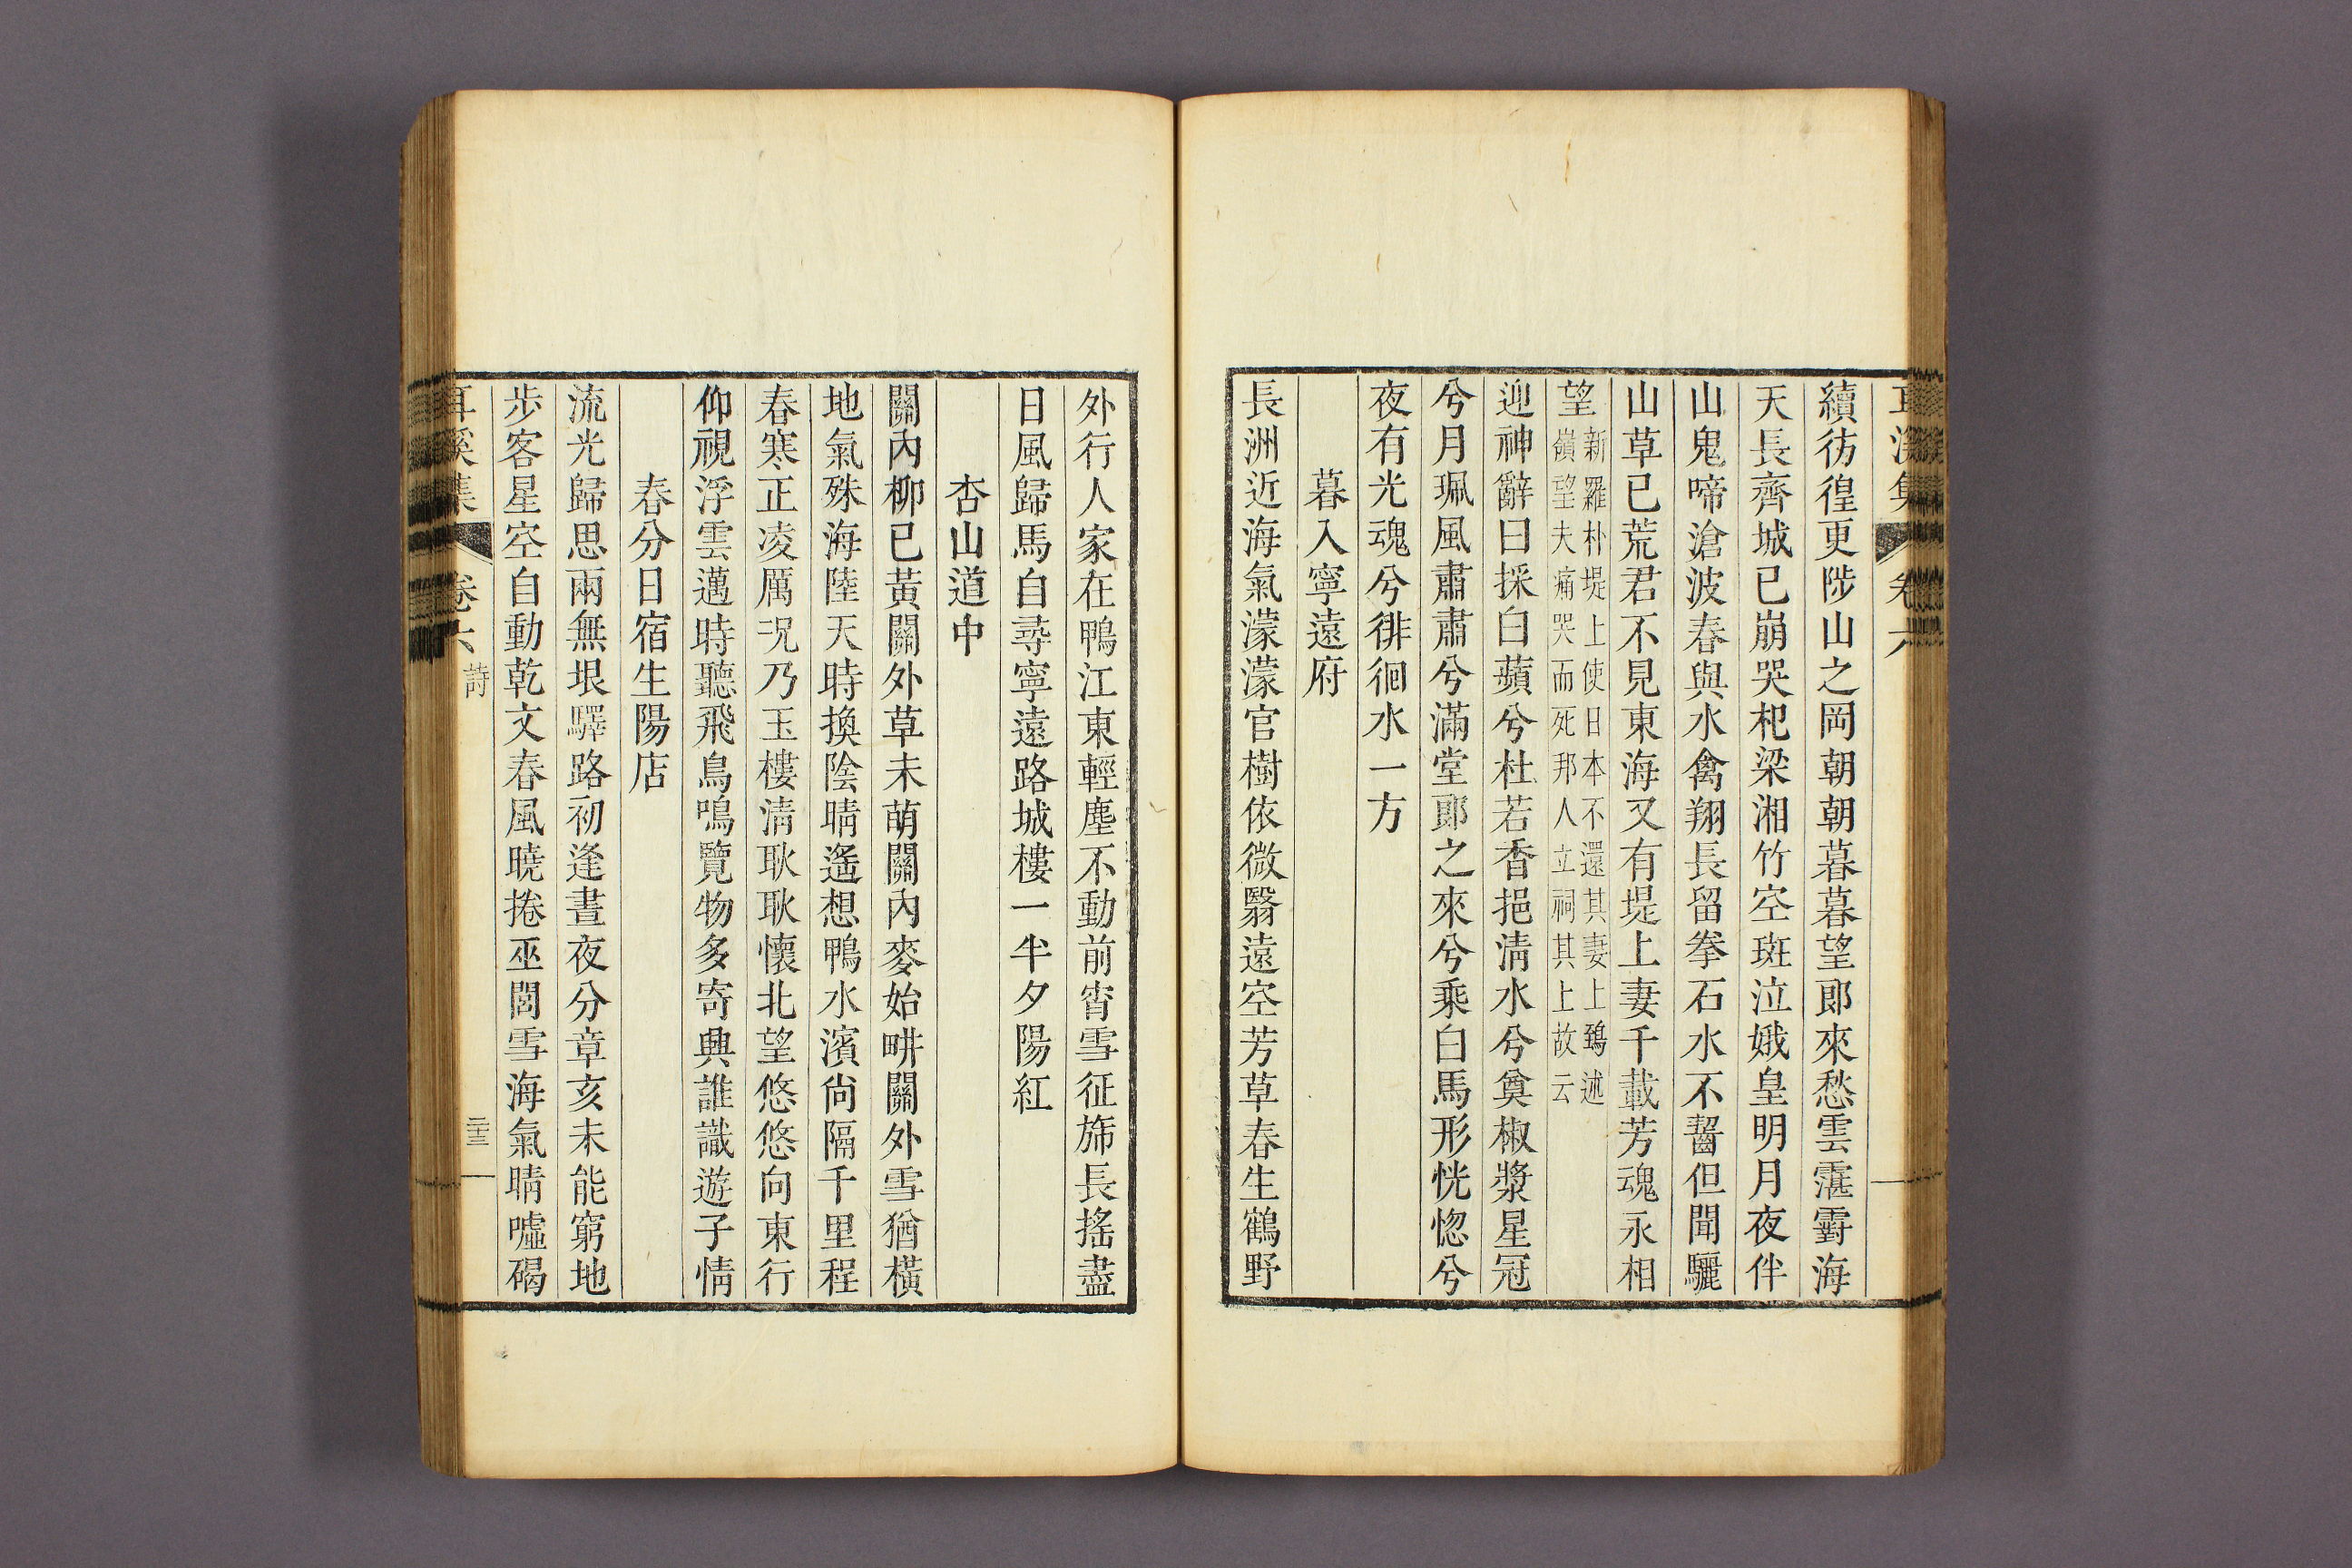 耳溪集 卷六
續彷徨更陟山之岡朝朝暮暮望郎來愁雲霮䨴海
天長齊城已崩哭杞梁湘竹空斑泣娥皇明月夜伴
山鬼啼滄波春與水禽翔長留拳石水不齧但聞驪
山草已荒君不見東海又有堤上妻千載芳魂永相
望新羅朴堤上使日本不還其妻上鵄述
嶺望夫痛哭而死邦人立祠其上故云
迎神辭曰採白蘋兮杜若香挹淸水兮奠椒漿星冠
兮月珮風肅肅兮滿堂郎之來兮乘白馬形恍惚兮
夜有光魂兮徘徊水一方
暮入寧遠府
長洲近海氣濛濛官樹依微翳遠空芳草春生鶴野
外行人家在鴨江東輕塵不動前宵雪征旆長搖盡
日風歸馬自尋寧遠路城樓一半夕陽紅
杏山道中
關內柳已黃關外草未萌關內麥始畊關外雪猶橫
地氣殊海陸天時換陰晴遙想鴨水濱尙隔千里程
春寒正凌厲况乃玉樓淸耿耿懷北望悠悠向東行
仰視浮雲邁時聽飛鳥鳴覽物多寄興誰識遊子情
春分日宿生陽店
流光歸思兩無垠驛路初逢晝夜分章亥未能窮地
步客星空自動乾文春風曉捲巫閭雪海氣晴噓碣
耳溪集 卷六 詩 三十三